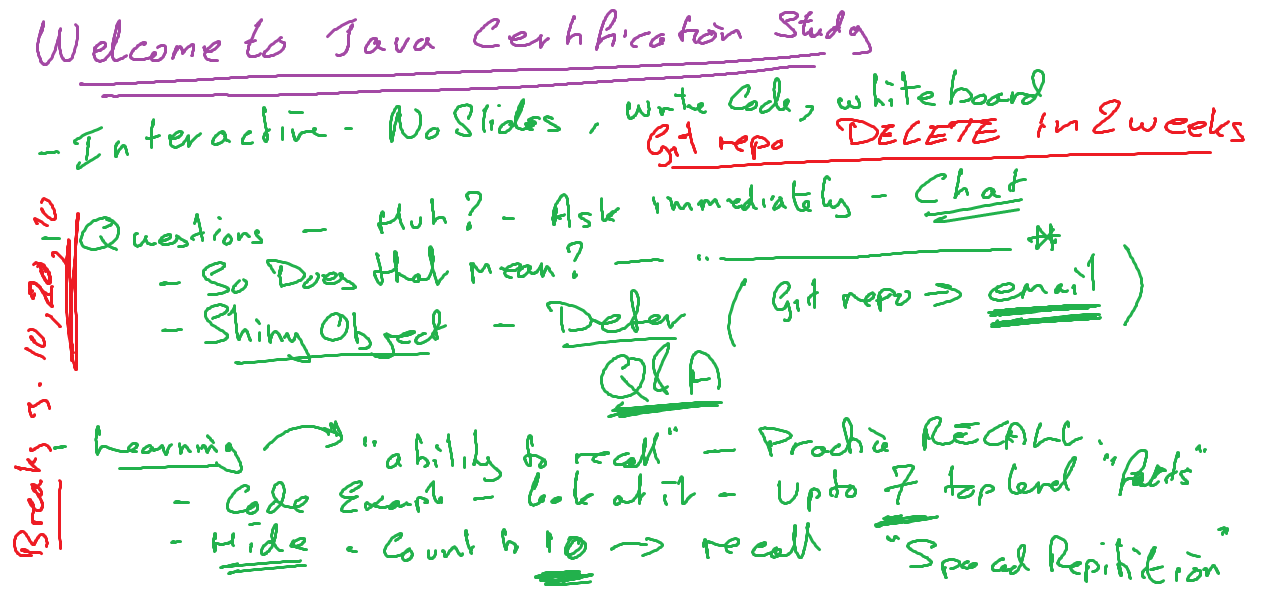 Welcome to Java Certification Study
- Interactive - No Slides, write Code, whiteboard
Git repo DELETE in 2 weeks
- Questions - Huh? - Ask immediately - Chat
- So Does that mean? - " *
- Shiny Object - Defer (Git repo => email)
Q&A
- Learning "ability to recall" - Practice RECALL.
- Code Example - look at it - Up to 7 top level "facts"
- Hide - Count to 10 -> recall "Spaced Repitition"
Breaks 3. 10, 20, 10